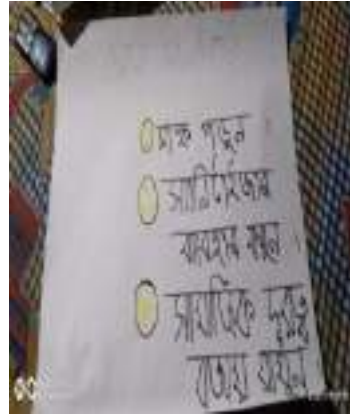 মাস্ক পড়ুন
স্যানিটাইজার
ব্যবহার করুন
সামাজিক দূরত্ব
বজায় রাখুন